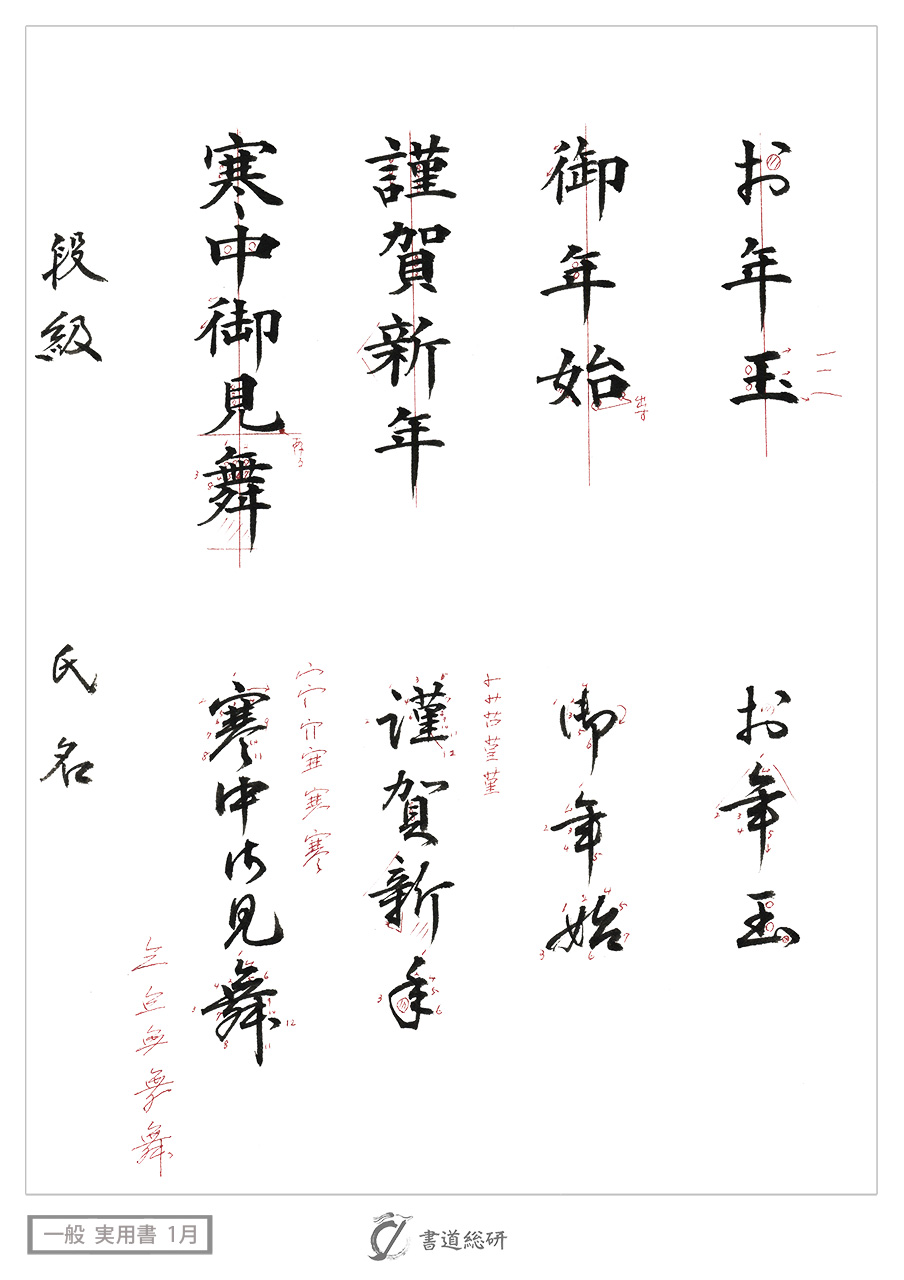 お年玉
御年始
謹賀新年
寒中御見舞
段級
お年玉
御年始
謹賀新年
寒中御見舞
氏名
出す
一般 実用書 1月
書道総研